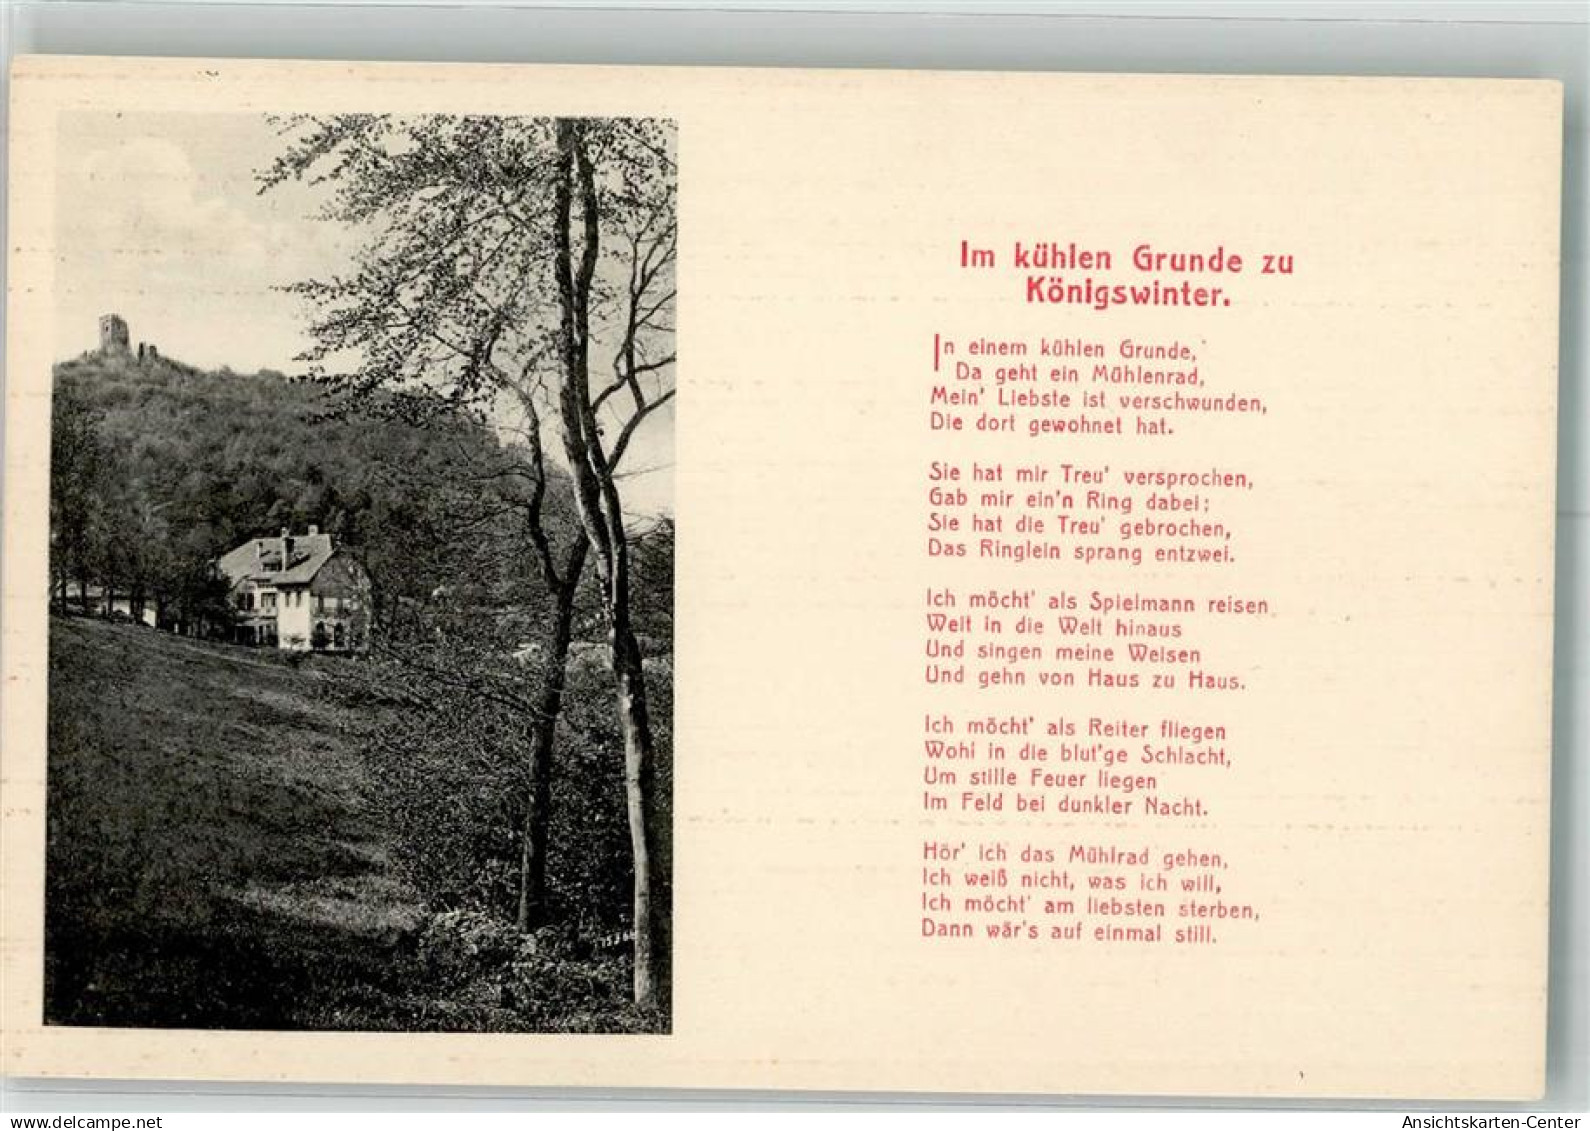 Im kühlen Grunde zu
Königswinter.
In einem kühlen Grunde,
Da geht ein Mühlenrad,
Mein' Liebste ist verschwunden,
Die dort gewohnet hat.
Sie hat mir Treu' versprochen,
Gab mir ein'n Ring dabei;
Sie hat die Treu' gebrochen,
Das Ringlein sprang entzwei.
Ich möcht' als Spielmann reisen
Weit in die Welt hinaus
Und singen meine Weisen
Und gehn von Haus zu Haus.
Ich möcht' als Reiter fliegen
Wohl in die blut'ge Schlacht,
Um stille Feuer liegen
Im Feld bei dunkler Nacht.
Hör' ich das Mühlrad gehen,
Ich weiß nicht, was ich will,
Ich möcht' am liebsten sterben,
Dann wär's auf einmal still.
www.delcampe.net
Ansichtskarten-Center